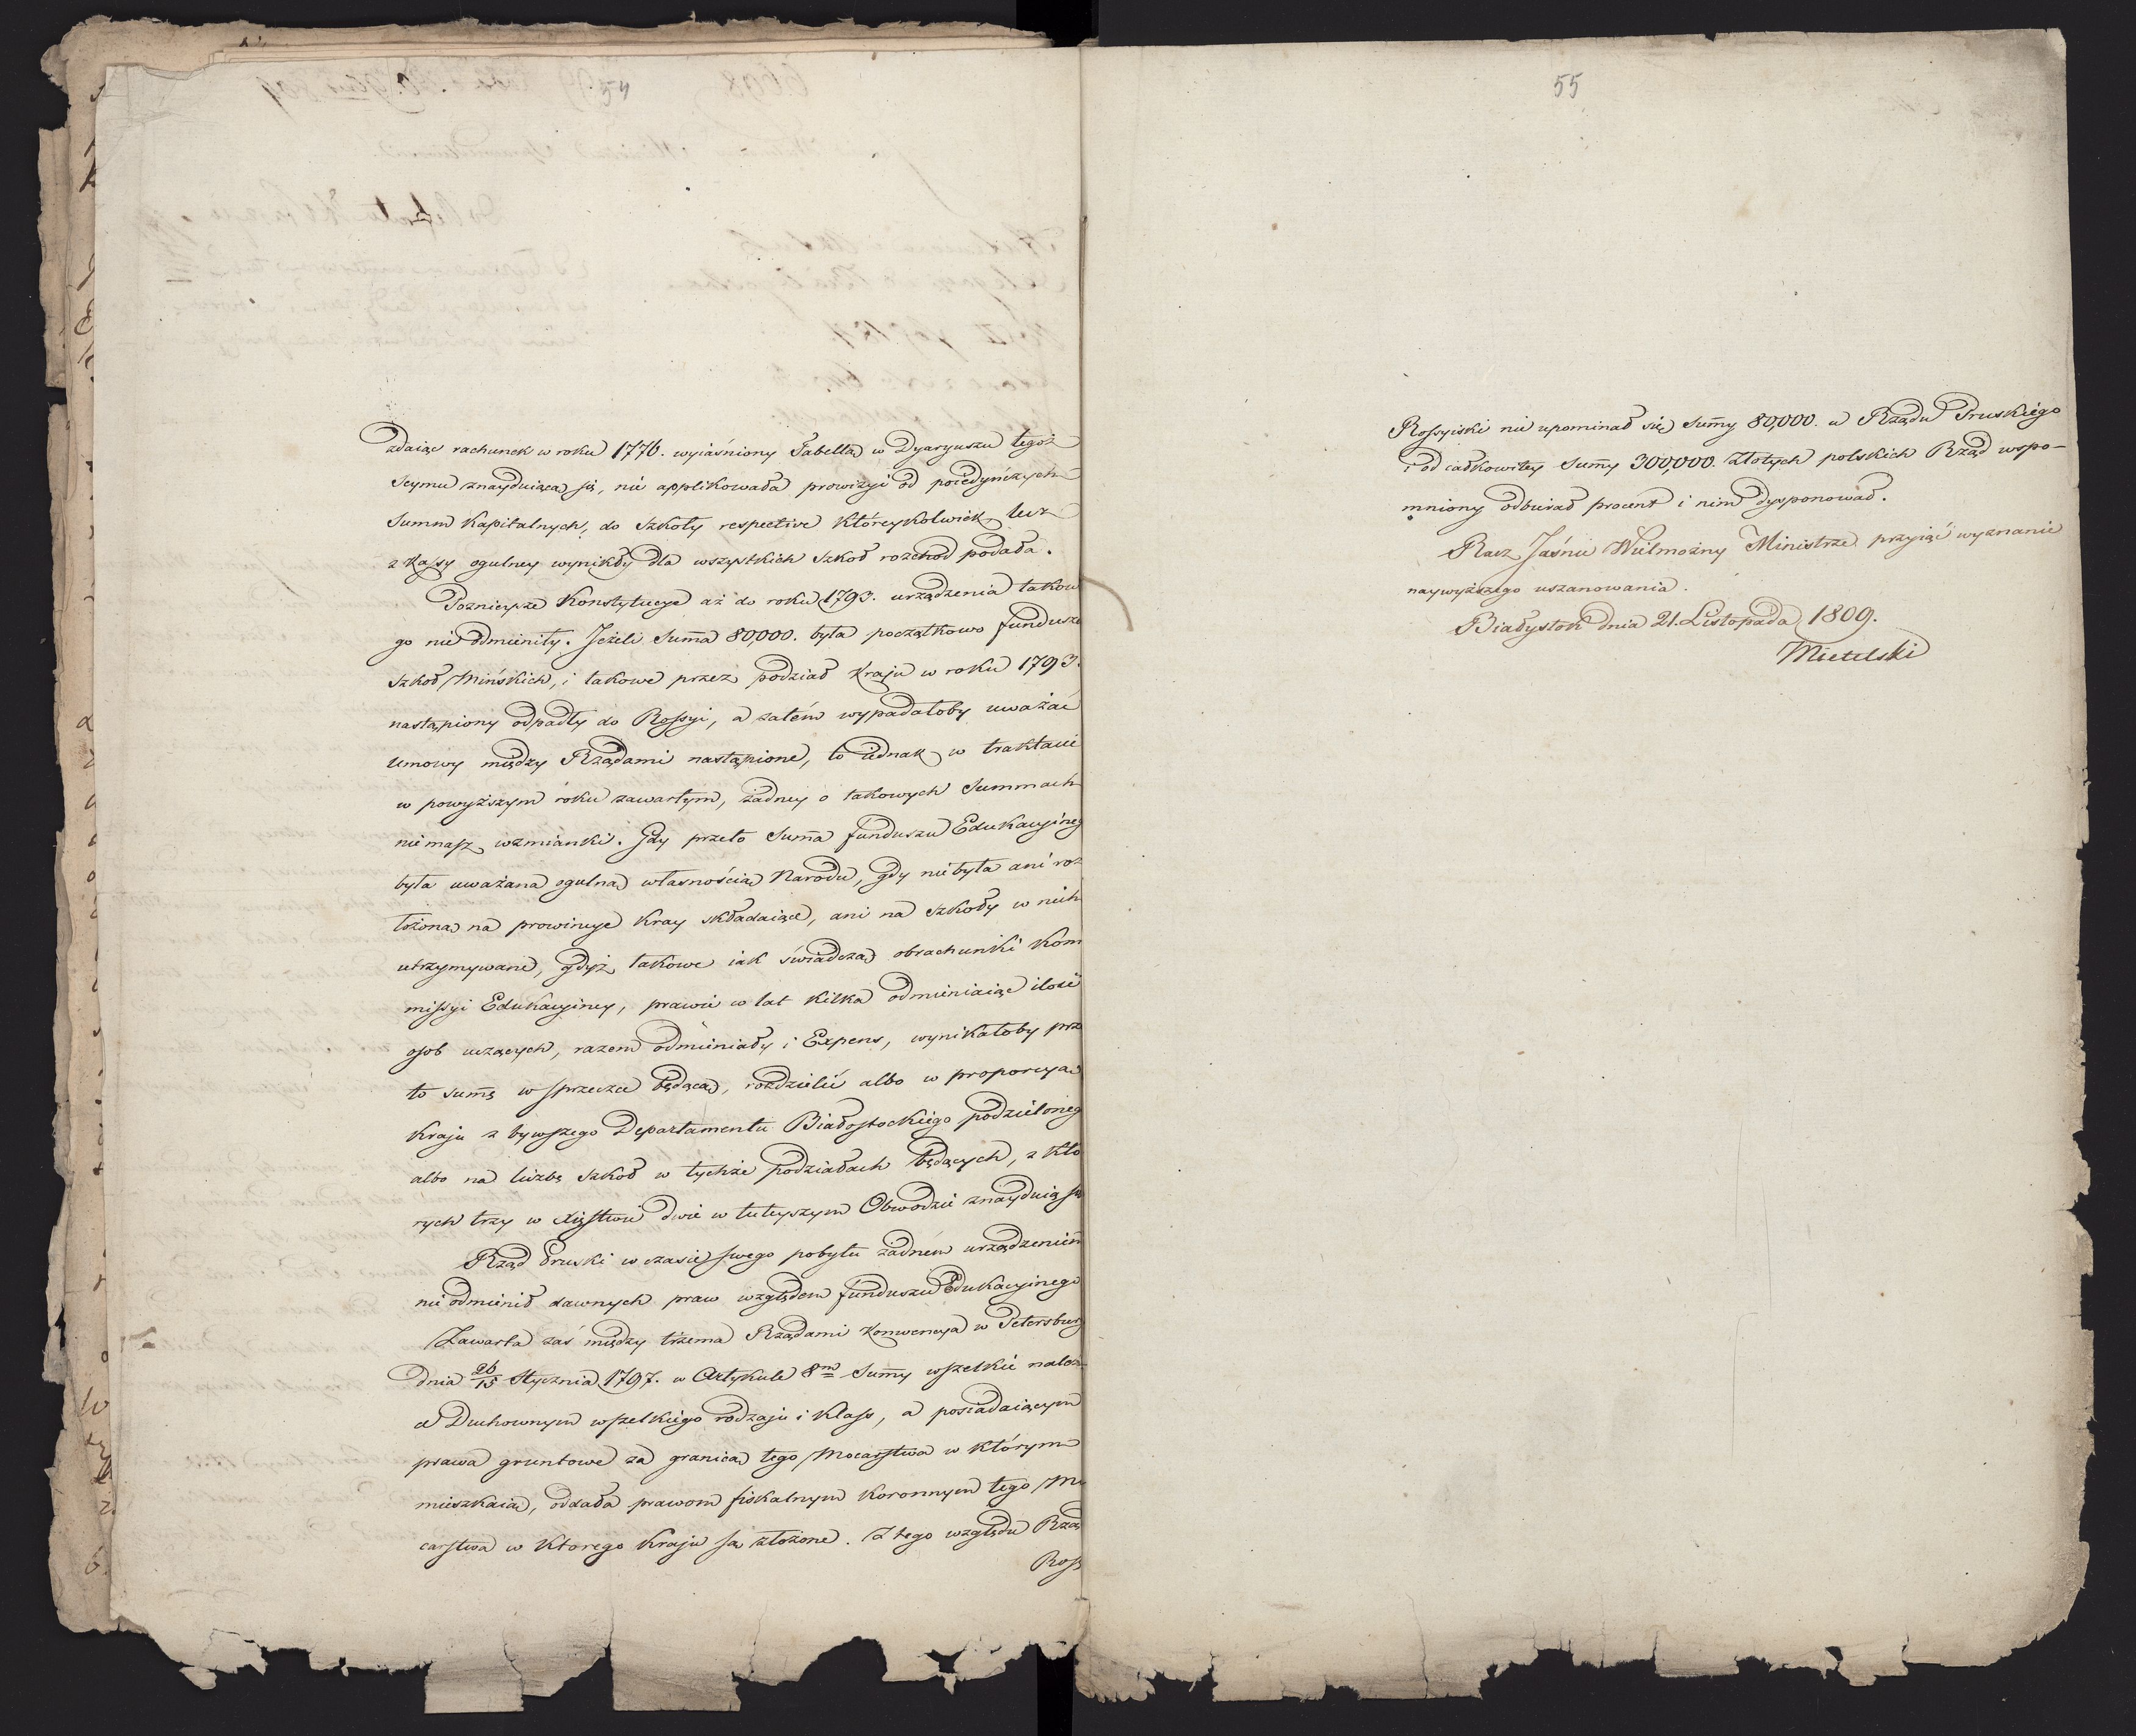 54
zdaiąc rachunek w roku 1776. wyiaśniony Tabellą w Dyaryuszu tegoż
Seymu znayduiącą się, nie applikowała prowizyi od poiedyńczych
Summ Kapitalnych, do szkoły respective którzykolwiek lecz
z Kassy ogulney wynikły dla wszystkich szkoł rozchod podała.
Poznieysze Konstytucye aż do roku 1793. urządzenia takow
go nie odmieniły. Jeżeli Summa 80,000. była początkowo fundusz
szkoł Mińskich, i takowe przez podział kraju w roku 1793.
nastąpiony odpadły do Rossyi, a zatém wypadałoby uważać
umowy między Rządami nastąpione, to iednak w traktacie
w powyższym roku zawartym, żadney o takowych Summach
nie masz wzmianki. Gdy przeto Summa funduszu Edukacyineg
była uważana ogulną własnością Narodu, gdy nie była ani roz
łożona na prowincye kray składaiące, ani na szkoły w nich
utrzymywane, gdyż takowe iak świadczą obrachunki Kom
missyi Edukacyiney, prawie co lat kilka odmieniaiąc ilość
osob uczących, razem odmieniały i Expens, wynikałoby prze
to summę w sprzeczce będącą, rozdzielić albo w proporcyą
kraju z bywszego Departamentu Białostockiego podzieloneg
albo na liczbę szkoł w tychże podziałach będących, z któ
rych trzy w Xięstwie dwie w tuteyszym Obwodzie znayduią się
Rząd Pruski w czasie swego pobytu żadném urządzeniem
nie odmienił dawnych praw względem funduszu Edukacyinego
Zawarta zaś między trzema Rządami Konwencya w Petersburg
dnia 26/15 Stycznia 1797. w Artykule 8m Summy wszelkie należ
a Duchownym wszelkiego rodzaju i Klass, a posiadaiącym
prawa gruntowe za granicą tego Mocarstwa w którym
mieszkaią, oddała prawom fiskalnym koronnym tego Mo
carstwa w ktorego kraju są złożone. Z tego względu Rząd
Ross
55
Rossyiski nie upominał się Summy 80,000. u Rządu Pruskiego
i od całkowitey Summy 300,000. Złotych polskich Rząd wspo-
mniony odbierał procent i nim dysponował.
Racz Jaśnie Wielmożny Ministrze przyiąć wyznanie
naywyższego uszanowania.
Białystok dnia 21. Listopada 1809.
Mietelski